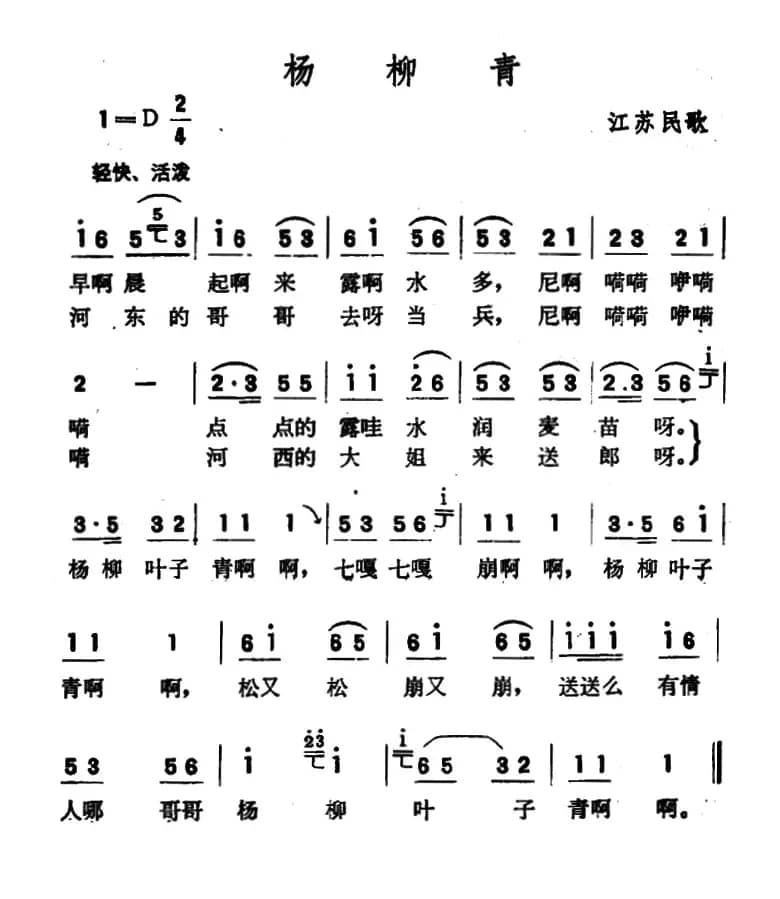 杨 柳 青
1=D 2/4
江苏民歌
轻快、活泼
i 6 5 5 3 | i 6 5 3 | 6 i 5 6 | 5 3 2 1 | 2 3 2 1 |
早啊晨 起啊来 露啊水 多，尼啊 嗬嗬 咿嗬
河 东的哥 哥 去呀当 兵，尼啊 嗬嗬 咿嗬
2 — | 2·3 5 5 | i i 2 6 | 5 3 5 3 | 2.3 5 6 i |
嗬 点 点的露哇水 润 麦 苗 呀。
嗬 河 西的大 姐 来 送 郎 呀。
3·5 3 2 | 1 1 1 | 5 3 5 6 i | 1 1 1 | 3·5 6 i |
杨 柳 叶子 青啊 啊，七嘎七嘎 崩啊 啊，杨 柳叶子
1 1 1 | 6 i 6 5 | 6 i 6 5 | i i i i 6 |
青啊 啊，松又 松 崩又 崩，送送么 有情
5 3 5 6 | i 2 3 i | i 6 5 3 2 | 1 1 1 ‖
人哪 哥哥 杨 柳 叶 子 青啊 啊。